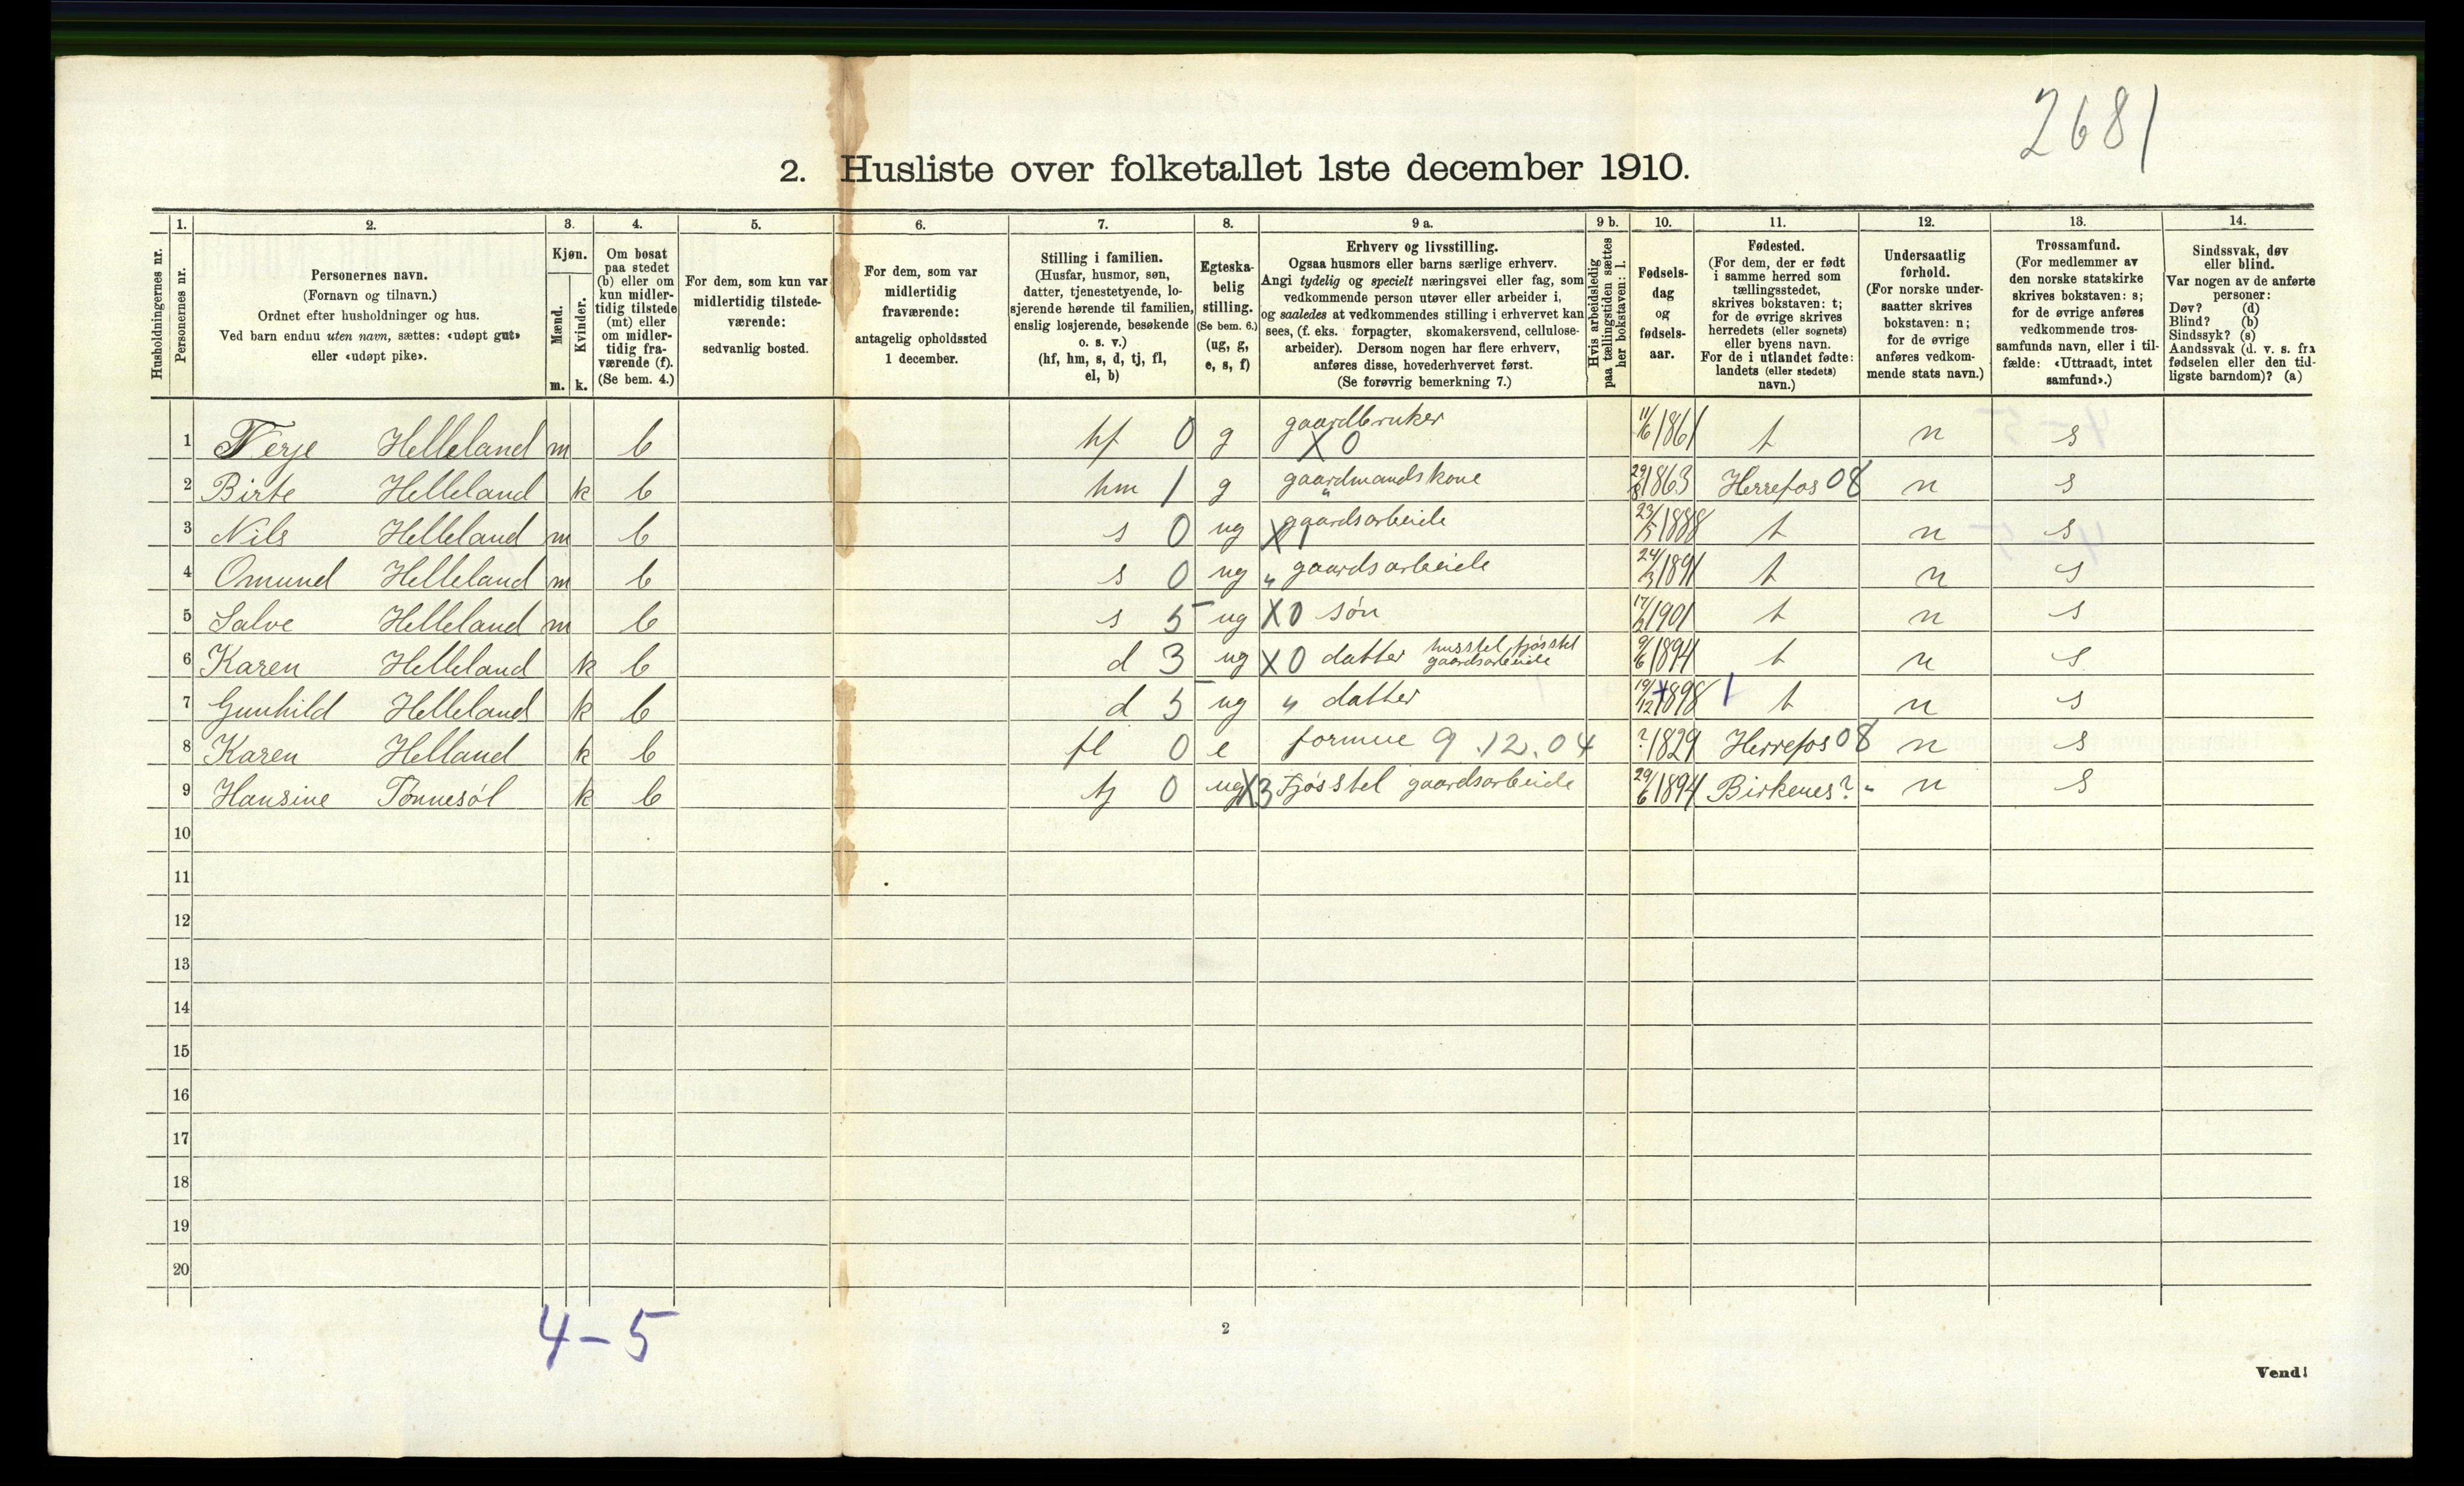 2681
2. Husliste over folketallet 1ste december 1910.
Husholdningernes nr.
1.
Personernes nr.
2.
Personernes navn.
(Fornavn og tilnavn.)
Ordnet efter husholdninger og hus.
Ved barn endnu uten navn, sættes: «udøpt gut»
eller «udøpt pike».
3.
Kjøn.
Mænd.
Kvinder.
m. k.
4.
Om bosat
paa stedet
(b) eller om
kun midler-
tidig tilstede
(mt) eller
om midler-
tidig fra-
værende (f).
(Se bem. 4.)
5.
For dem, som kun var
midlertidig tilstede-
værende:
sedvanlig bosted.
6.
For dem, som var
midlertidig
fraværende:
antagelig opholdssted
1 december.
7.
Stilling i familien.
(Husfar, husmor, søn,
datter, tjenestetyende, lo-
sjerende hørende til familien,
enslig losjerende, besøkende
o. s. v.)
(hf, hm, s, d, tj, fl,
el, b)
8.
Egteska-
belig
stilling.
(Se bem. 6.)
(ug, g,
e, s, f)
9 a.
Erhverv og livsstilling.
Ogsaa husmors eller barns særlige erhverv.
Angi tydelig og specielt næringsvei eller fag, som
vedkommende person utøver eller arbeider i,
og saaledes at vedkommendes stilling i erhvervet kan
sees, (f. eks. forpagter, skomakersvend, cellulose-
arbeider). Dersom nogen har flere erhverv,
anføres disse, hovederhvervet først.
(Se forøvrig bemerkning 7.)
9 b.
Hvis arbeidsledig
paa tællingstiden sættes
her bokstaven: l.
10.
Fødsels-
dag
og
fødsels-
aar.
11.
Fødested.
(For dem, der er født
i samme herred som
tællingsstedet,
skrives bokstaven: t;
for de øvrige skrives
herredets (eller sognets)
eller byens navn.
For de i utlandet fødte:
landets (eller stedets)
navn.)
12.
Undersaatlig
forhold.
(For norske under-
saatter skrives
bokstaven: n;
for de øvrige
anføres vedkom-
mende stats navn.)
13.
Trossamfund.
(For medlemmer av
den norske statskirke
skrives bokstaven: s;
for de øvrige anføres
vedkommende tros-
samfunds navn, eller i til-
fælde: «Uttraadt, intet
samfund».)
14.
Sindssvak, døv
eller blind.
Var nogen av de anførte
personer:
Døv? (d)
Blind? (b)
Sindssyk? (s)
Aandssvak (d. v. s. fra
fødselen eller den tid-
ligste barndom)? (a)
1 Terje Helleland m b hf 0 g gaardbruker X 0 11/6 1861 t n s
2 Birte Helleland k b hm 1 g gaardmandskone " 29/8 1863 Herrefos 08 n s
3 Nils Helleland m b s 0 ug X 1 gaardsarbeide 23/5 1888 t n s
4 Omund Helleland m b s 0 ug " gaardsarbeide 24/3 1891 t n s
5 Salve Helleland m b s 5 ug X 0 søn 17/2 1901 t n s
6 Karen Helleland k b d 3 ug X 0 datter husstel, fjøsstel gaardsarbeide 9/6 1894 t n s
7 Gunhild Helleland k b d 5 ug " datter 19/12 1898 1 t n s
8 Karen Helland k b fl 0 e formue 9.12.04 ? 1829 Herrefos 08 n s
9 Hansine Tønnesøl k b tj 0 ug X 3 Fjøsstel gaardsarbeide 29/6 1894 Birkenes? " n s
10
11
12
13
14
15
16
17
18
19
20
4-5
2
Vend!